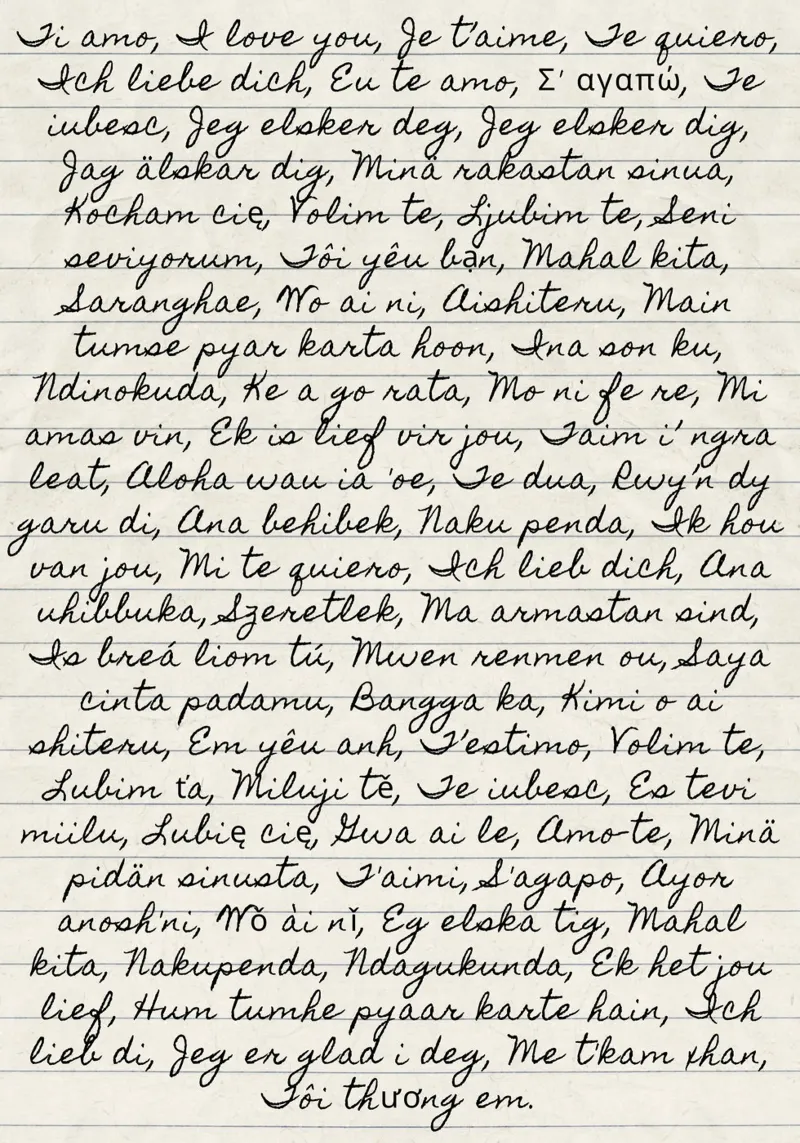 Ti amo, I love you, Je t'aime, Te quiero,
Ich liebe dich, Eu te amo, Σ' αγαπώ, Te
iubesc, Jeg elsker deg, Jeg elsker dig,
Jag älskar dig, Minä rakastan sinua,
Kocham cię, Volim te, Ljubim te, Seni
seviyorum, Tôi yêu bạn, Mahal kita,
Saranghae, Wo ai ni, Aishiteru, Main
tumse pyar karta hoon, Ina son ku,
Ndinokuda, Ke a go rata, Mo ni fe re, Mi
amas vin, Ek is lief vir jou, Taim i' ngra
leat, Aloha wau ia 'oe, Te dua, Rwy'n dy
garu di, Ana behibek, Naku penda, Ik hou
van jou, Mi te quiero, Ich lieb dich, Ana
uhibbuka, Szeretlek, Ma armastan sind,
Is breá liom tú, Mwen renmen ou, Saya
cinta padamu, Bangga ka, Kimi o ai
shiteru, Em yêu anh, T'estimo, Volim te,
Lubim ťa, Miluji tě, Te iubesc, Es tevi
miilu, Lubię cię, Gwa ai le, Amo-te, Minä
pidän sinusta, T'aimi, S'agapo, Ayor
anosh'ni, Wǒ ài nǐ, Eg elska tig, Mahal
kita, Nakupenda, Ndagukunda, Ek het jou
lief, Hum tumhe pyaar karte hain, Ich
lieb di, Jeg er glad i deg, Me t'kam xhan,
Tôi thương em.